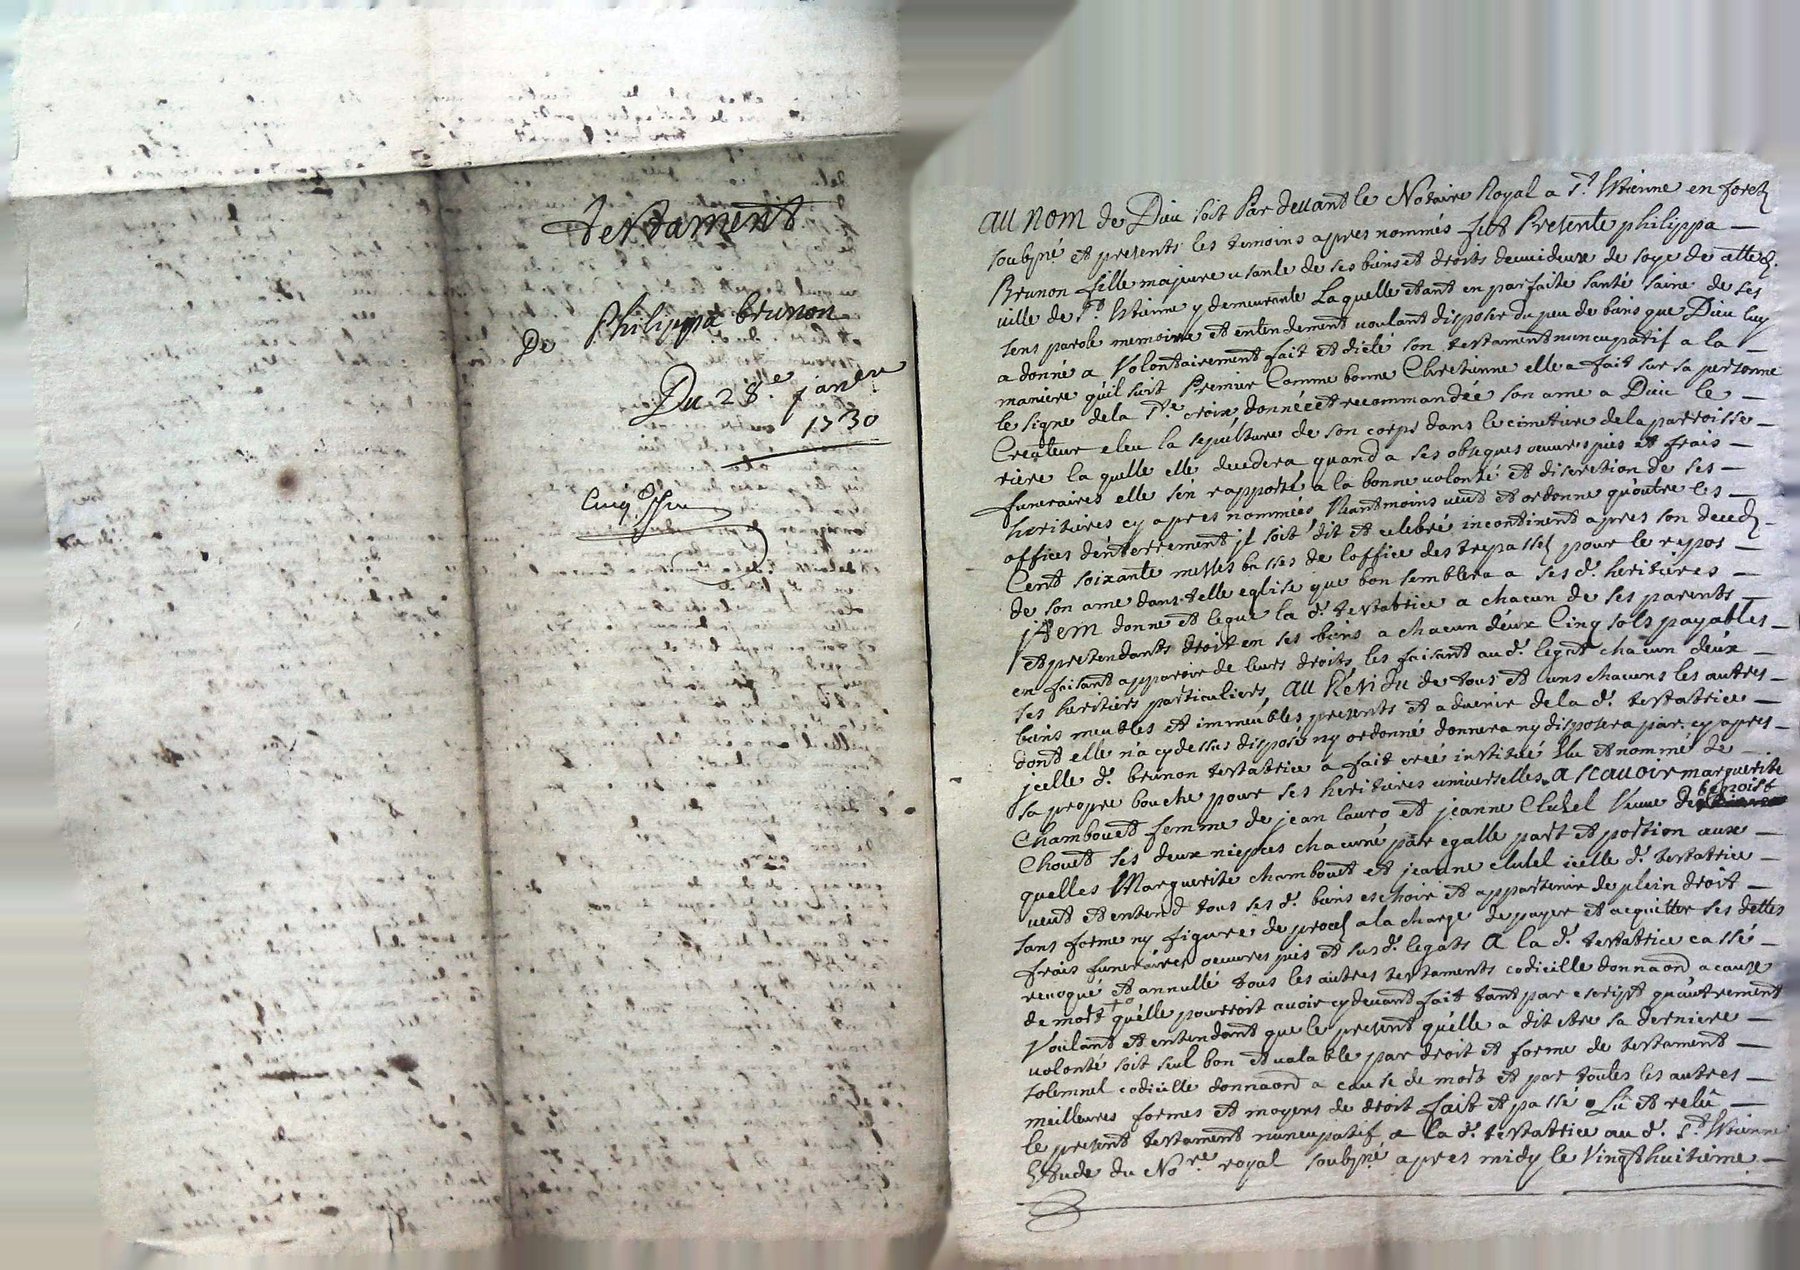 testament
De Philippa brunon
Du 28.e janer
1730
au nom de Dieu soit Par devant le Notaire Royal a St. Estienne en forez
soubzné et presents les temoins apres nommés fut Presente philippa
Brunon fille majeure usante de ses biens et droits devuideuse de soye de cette
ville de St. Estienne y demeurante Laquelle etant en parfaite santé saine de ses
sens parole memoire et entendement voulant disposer du peu de biens que Dieu luy
a donné a Volontairement fait et dicté son testament nuncupatif a la
maniere qu'il suit Premier Comme bonne Chretienne elle a fait sur sa personne
le signe de la Ste. croix donnée et recommandée son ame a Dieu le
Créateur eleu la sepulture de son corps dans le cimeture de la parroisse
riere la quelle elle decedera quand a ses obseques oeuvres pies et frais
funeraires elle s'en rapporte a la bonne volonté et discretion de ses
heritieres cy apres nommées Neantmoins veut et ordonne qu'outre les
offices d'enterrement jl soit dit et celebré incontinent apres son deced
Cent soixante messes basses de l'office des trepassez pour le repos
de son ame dans telle eglise que bon semblera a ses d. heritieres
jtem donne et legue la d. testatrice a chacun de ses parents
et pretendants droit en ses biens a chacun d'eux Cinq sols payables
en faisant apparoir de leurs droits les faisant au d. legat chacun d'eux
ses heritiers particuliers au Residu de tous et uns chacuns les autres
biens meubles et immeubles presents et advenir de la d. testatrice
dont elle n'a cy dessus disposé ny ordonné donnera ny disposera par cy apres
jcelle d. brunon testatrice a fait créé institué Elu et nommé de
sa propre bouche pour ses heritieres universelles a scavoir marguerite
Chambouet femme de jean lauro et jeanne Clulel Veuve de benoist
Chouet ses deux niepces chacune par egalle part et portion aux
quelles Marguerite chambouet et jeanne clulel icelle d. testatrice
veut et entend tous ses d. biens eschoir et appartenir de plein droit
sans forme ny figure de procez a la charge de payer et acquitter ses dettes
frais funeraires oeuvres pies et susd. legats A la d. testatrice cassé
revoqué et annullé tous les autres testaments codicille donnaon a cause
de mort qu'elle pourroit avoir cy devant fait tant par escript qu'autrement
Voulant et entendant que le present qu'elle a dit etre sa derniere
volonté soit seul bon et valable par droit et forme de testament
solemnel codicille donnaon a cause de mort et par toutes les autres
meilleures formes et moyens de droit fait et passé Lû et relû
le present testament nuncupatif a la d. testatrice au d. St. Estienne
Etude du Nore. royal soubzné apres midy le Vingt huitieme